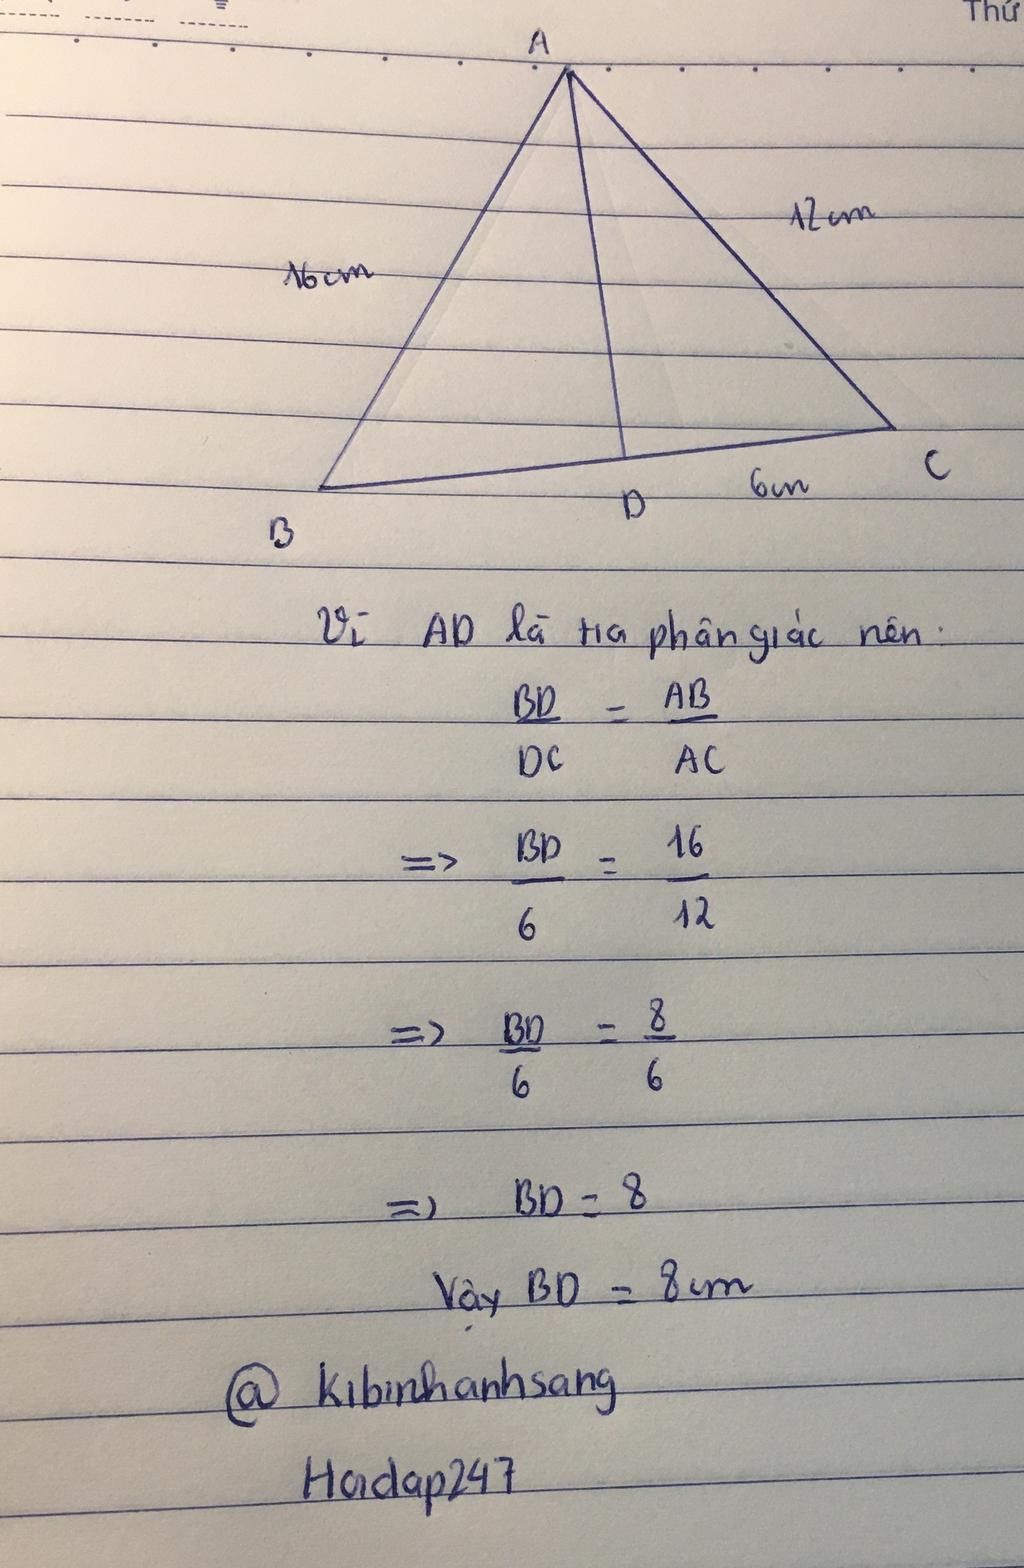 Thứ
A
12cm
16cm
C
6cm
D
B
Vì AD là tia phân giác nên.
BD = AB
DC AC
=> BD = 16
6 12
=> BD = 8
6 6
=> BD = 8
Vậy BD = 8cm
@ Kibinhanhsang
Hoidap247